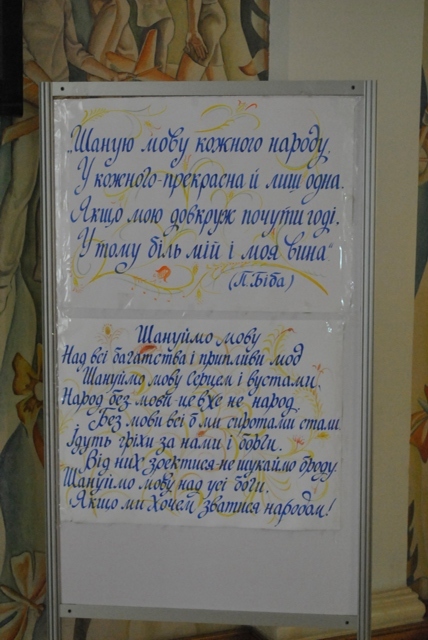 „Шаную мову кожного народу.
У кожного-прекрасна й лиш одна.
Якщо мою довкруж почути годі.
У тому біль мій і моя вина"
(П.Біба)
Шануймо мову
Над всі багатства і припливи мод
Шануймо мову Серцем і вустами.
Народ без мови-це вже не народ.
Без мови всі б ми сиротами стали.
Ідуть гріхи за нами і борги.
Від них зректися-не шукаймо броду.
Шануймо мову над усі боги.
Якщо ми Хочем зватися народом!